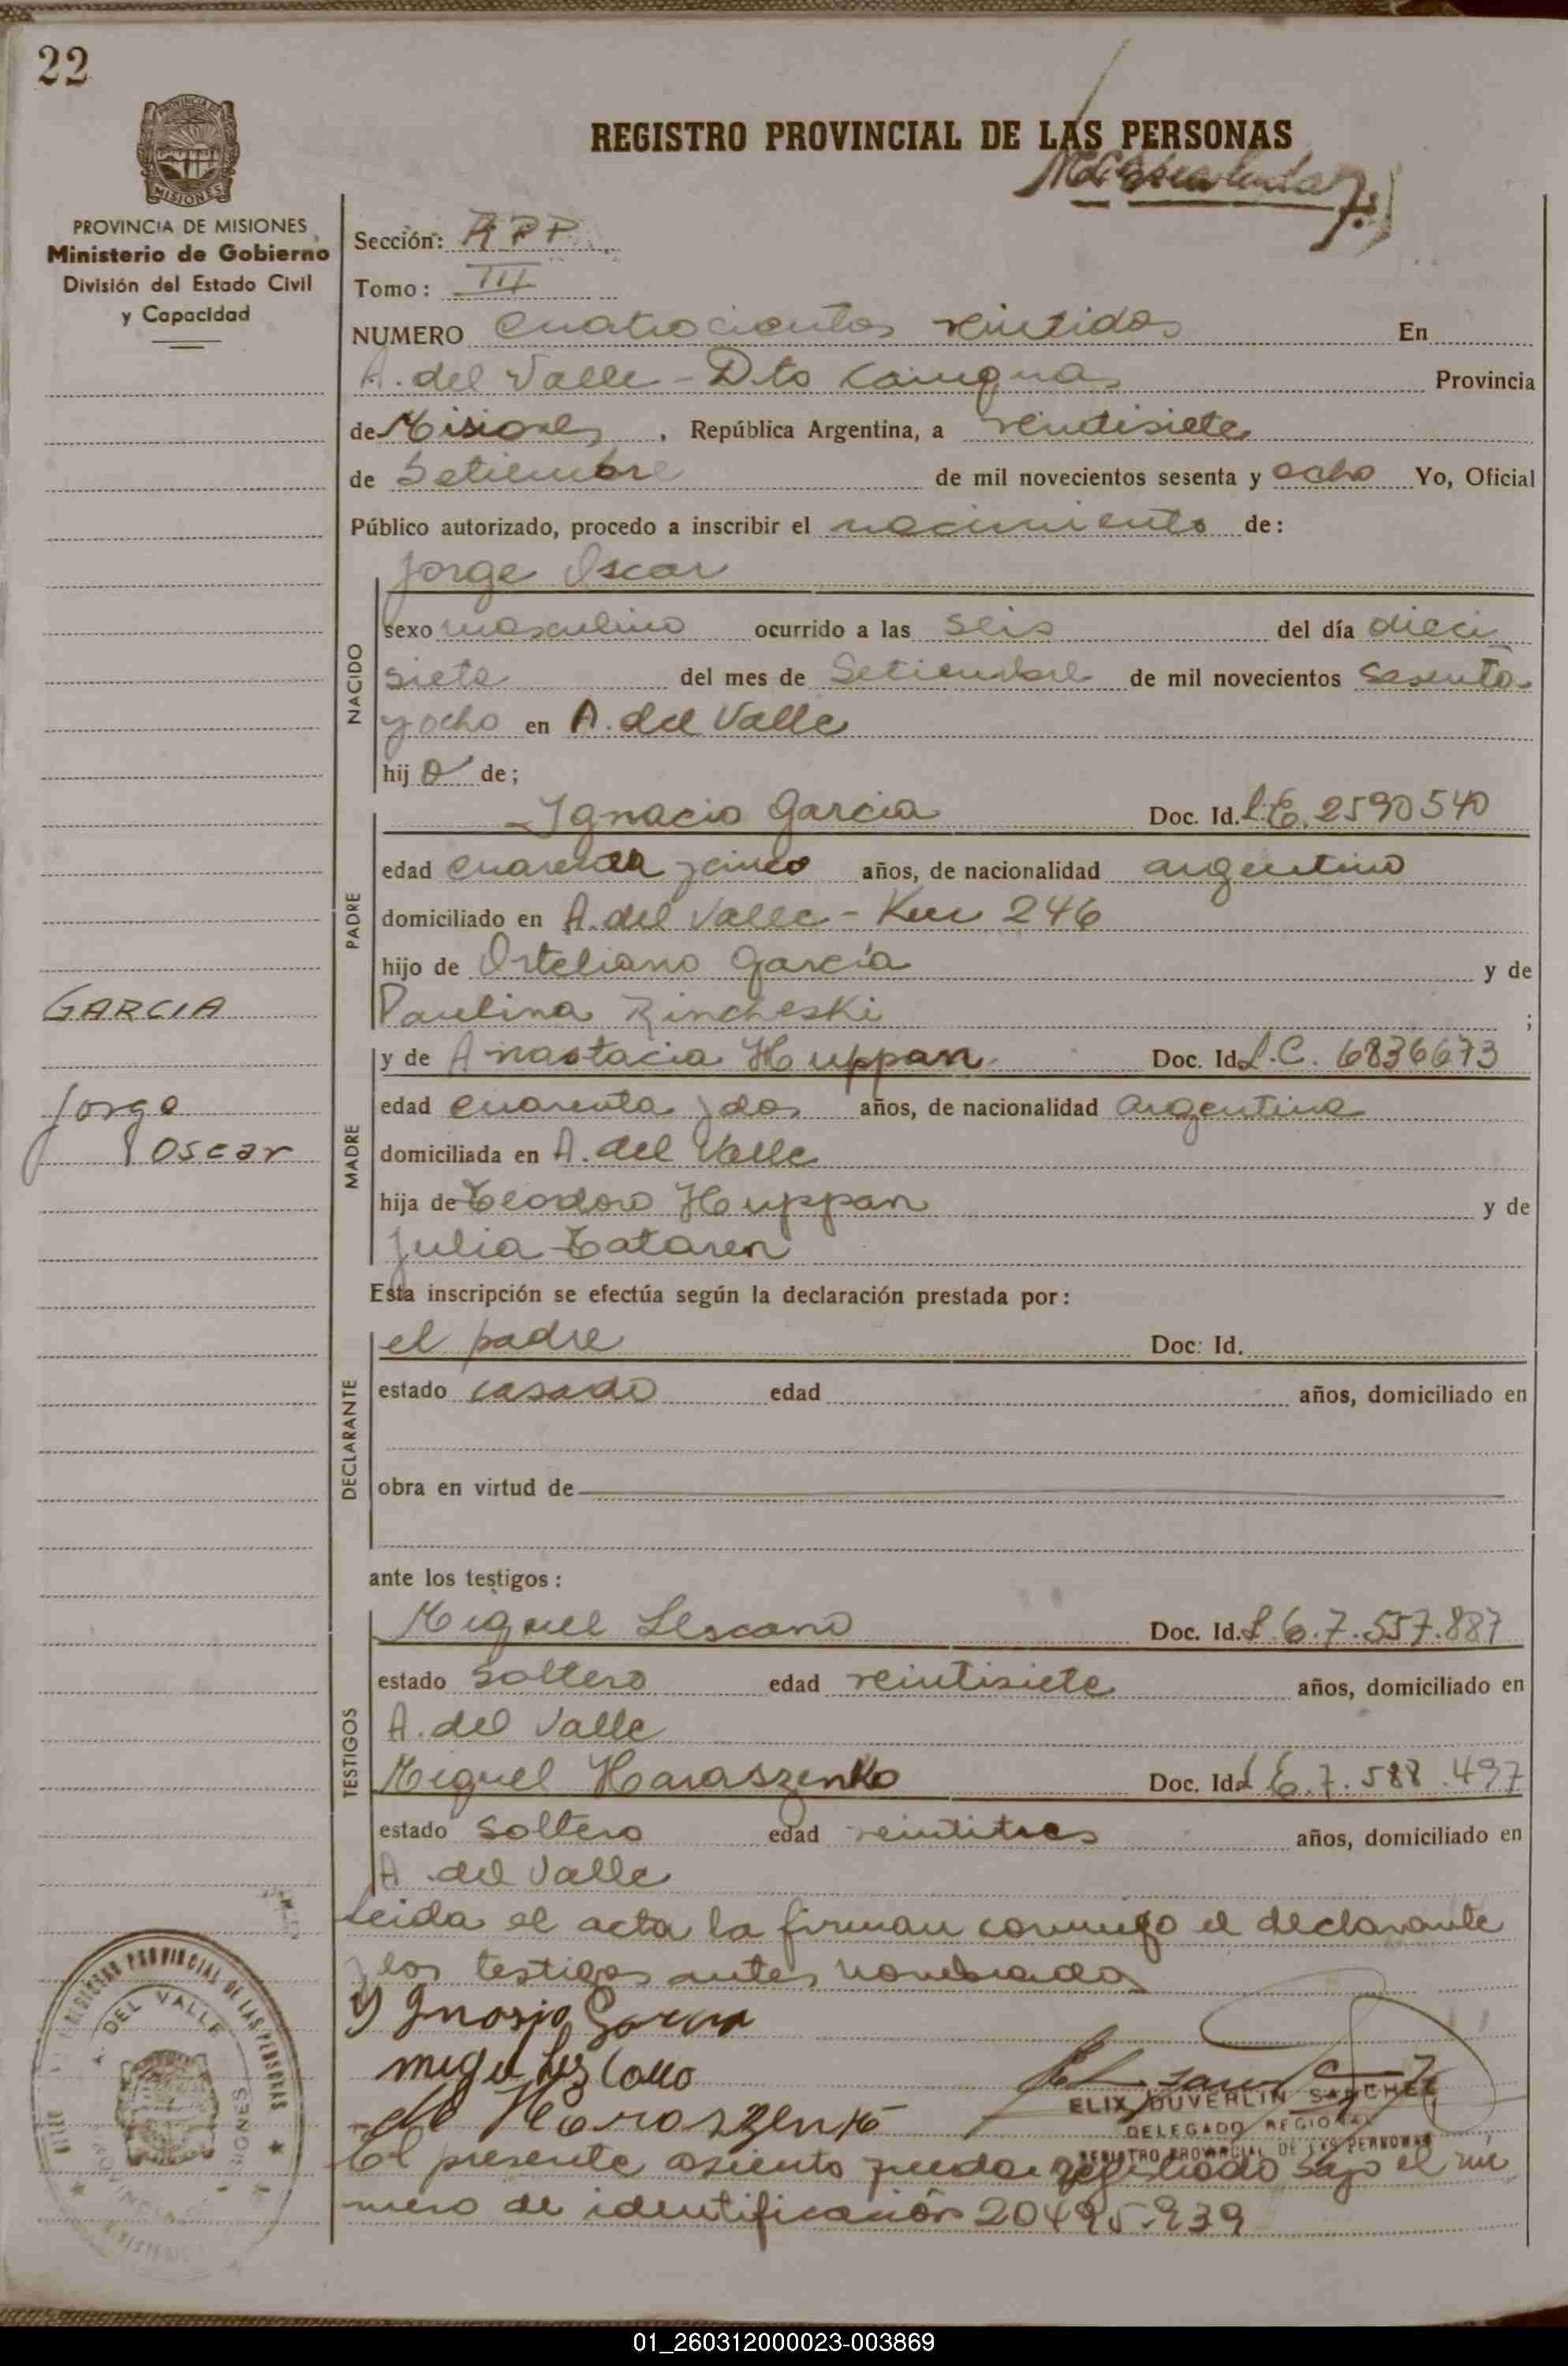 22
REGISTRO PROVINCIAL DE LAS PERSONAS
MISIONES
PROVINCIA DE MISIONES
Ministerio de Gobierno
División del Estado Civil
y Capacidad
Sección: APP
Tomo: III
NUMERO cuatrocientos veintidos En
A. del Valle - Dto Cainguas Provincia
de Misiones, República Argentina, a veintisiete
de Setiembre de mil novecientos sesenta y ocho Yo, Oficial
Público autorizado, procedo a inscribir el nacimiento de:
NACIDO
Jorge Oscar
sexo masculino ocurrido a las seis del día dieci
siete del mes de Setiembre de mil novecientos sesenta
y ocho en A. del Valle
hijo de;
PADRE
Ignacio Garcia Doc. Id. L.E. 2590540
edad cuarenta y cinco años, de nacionalidad argentino
domiciliado en A. del Valle - Km 246
hijo de Orteliano García y de
Paulina Rincheski ;
GARCIA
Jorge
Oscar
MADRE
y de Anastacia Huppan Doc. Id. L.C. 6836673
edad cuarenta y dos años, de nacionalidad argentina
domiciliada en A. del Valle
hija de Teodoro Huppan y de
Julia Tataren
Esta inscripción se efectúa según la declaración prestada por:
DECLARANTE
el padre Doc: Id.
estado casado edad años, domiciliado en
obra en virtud de
ante los testigos:
TESTIGOS
Miguel Lescano Doc. Id. L.E. 7.557.887
estado soltero edad veintisiete años, domiciliado en
A. del Valle
Miguel Haraszenko Doc. Id. L.E. 7.588.497
estado soltero edad veintitres años, domiciliado en
A. del Valle
Leida el acta la firman conmigo el declarante
y los testigos antes nombrados
Haraszenko
ELIX DUVERLIN SANCHEZ
DELEGADO REGIONAL
REGISTRO PROVINCIAL DE LAS PERSONAS
El presente asiento queda registrado bajo el nú
mero de identificación 20495.939
REGISTRO PROVINCIAL DE LAS PERSONAS
A. DEL VALLE
01_260312000023-003869